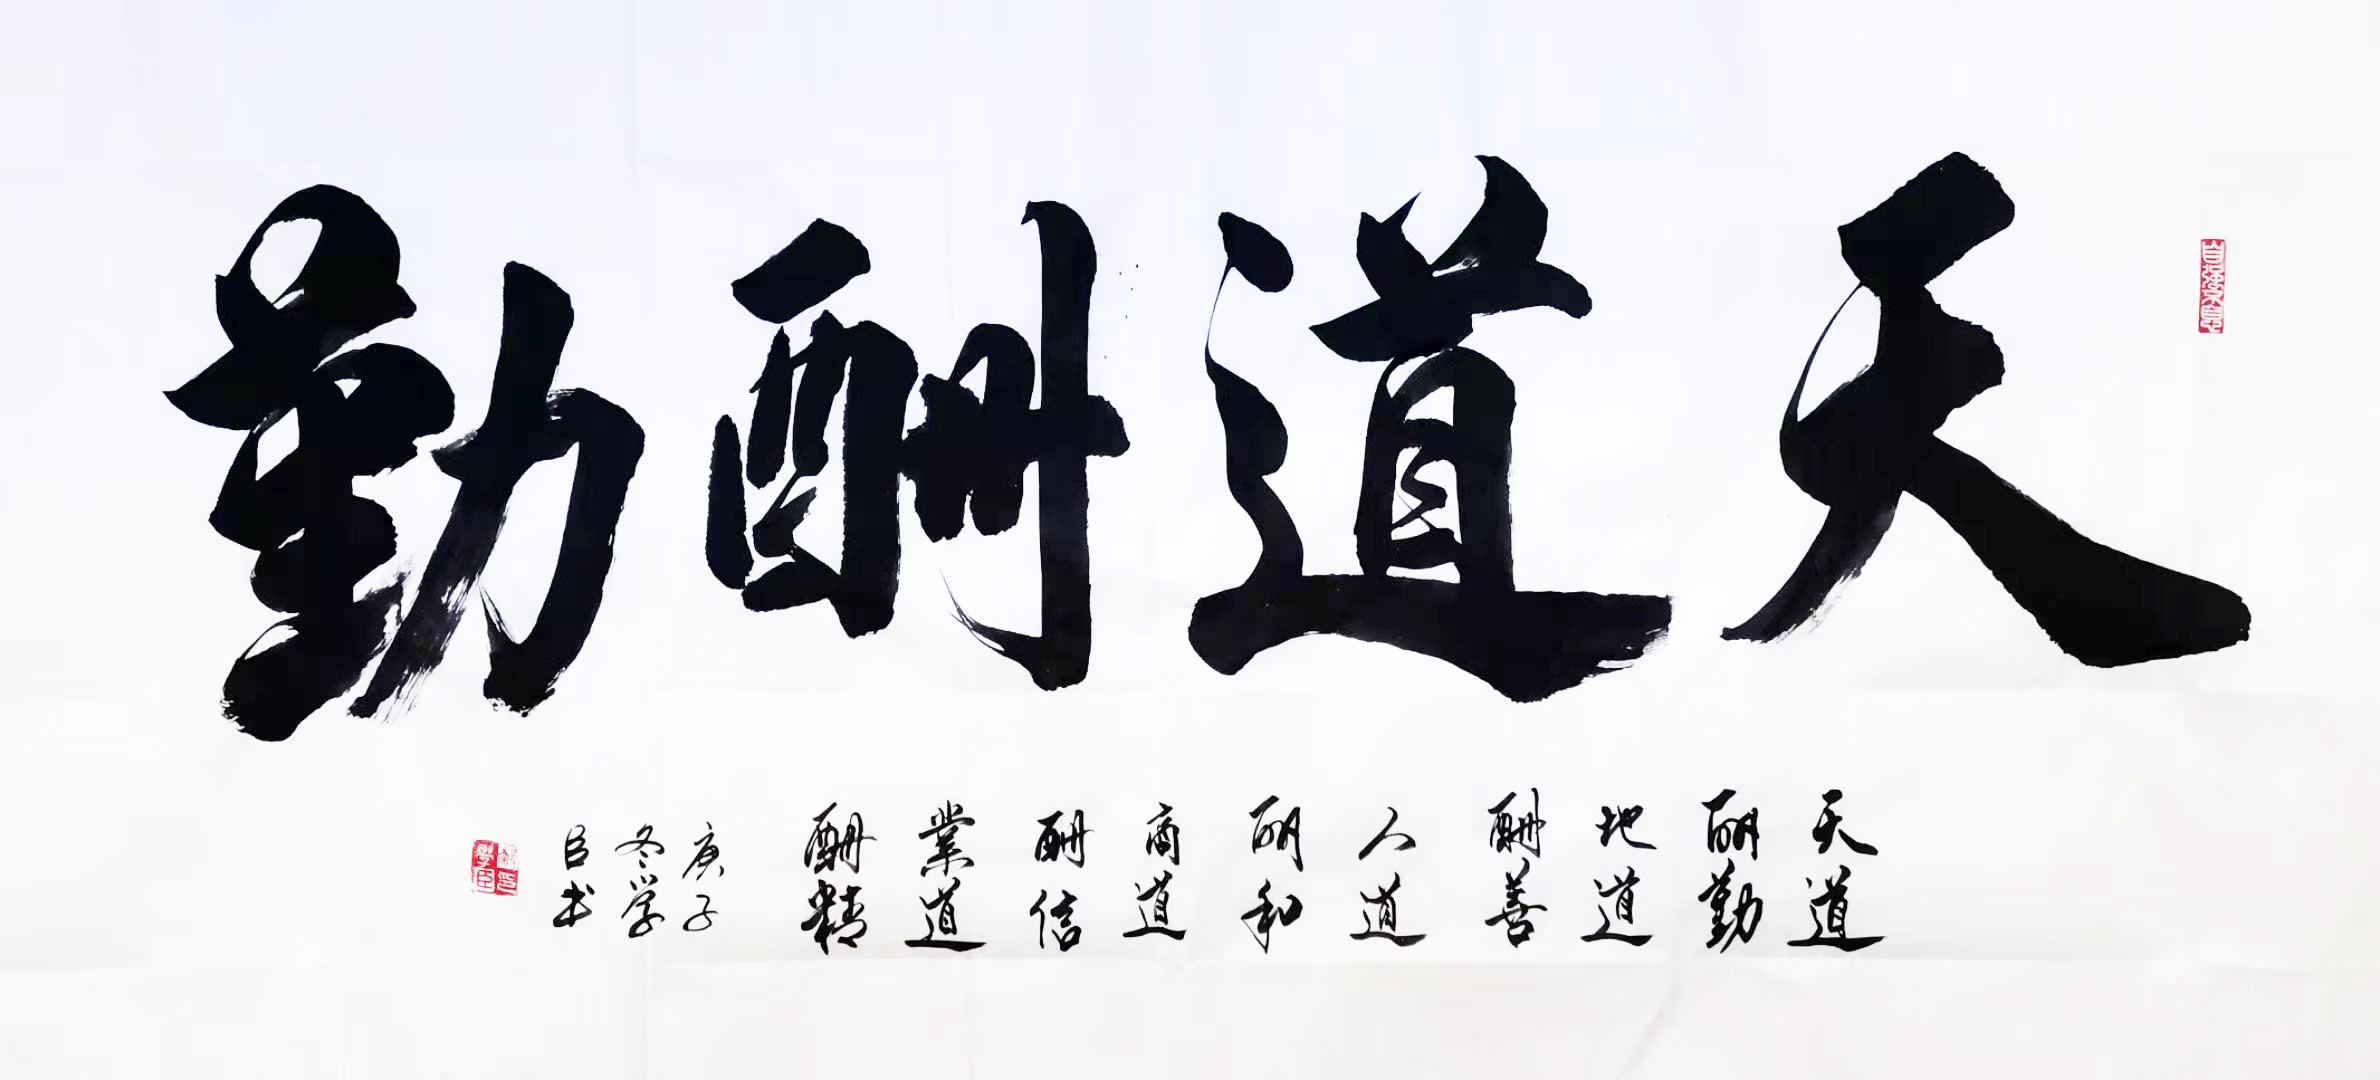 天道酬勤
自强不息
天道
酬勤
地道
酬善
人道
酬和
商道
酬信
業道
酬精
庚子
冬学
臣书